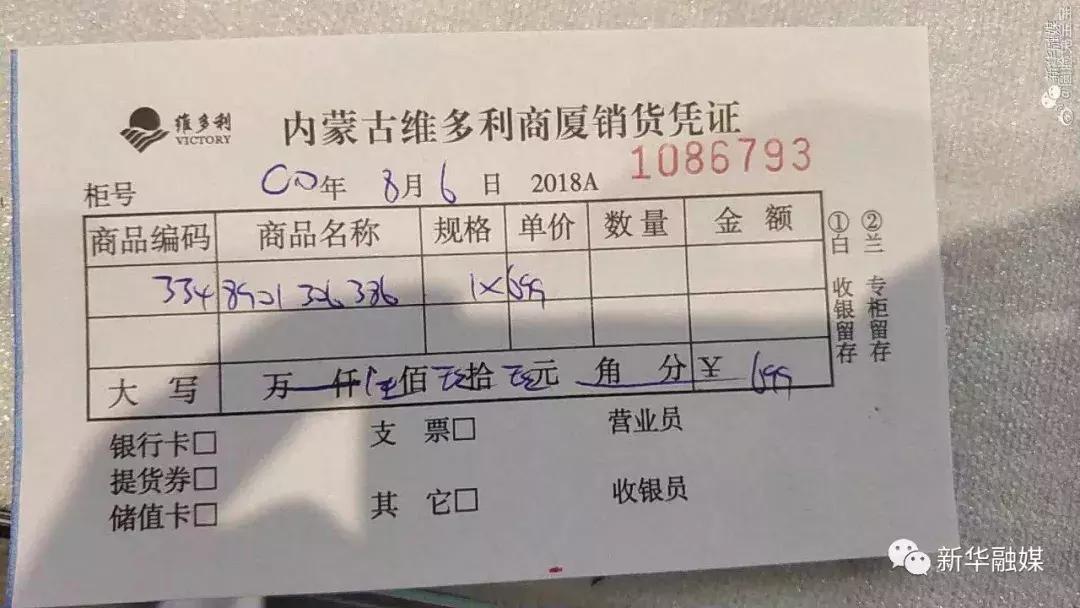 维多利
VICTORY
内蒙古维多利商厦销货凭证
1086793
柜号 年 8月6日 2018A
商品编码 商品名称 规格 单价 数量 金额
334 8921 326 386 1×699
大写 万 仟 佰 拾 元 角 分 ¥ 699
①白 收银留存
②兰 专柜留存
银行卡□ 支票□ 营业员
提货券□
储值卡□ 其它□ 收银员
新华融媒
新华融媒